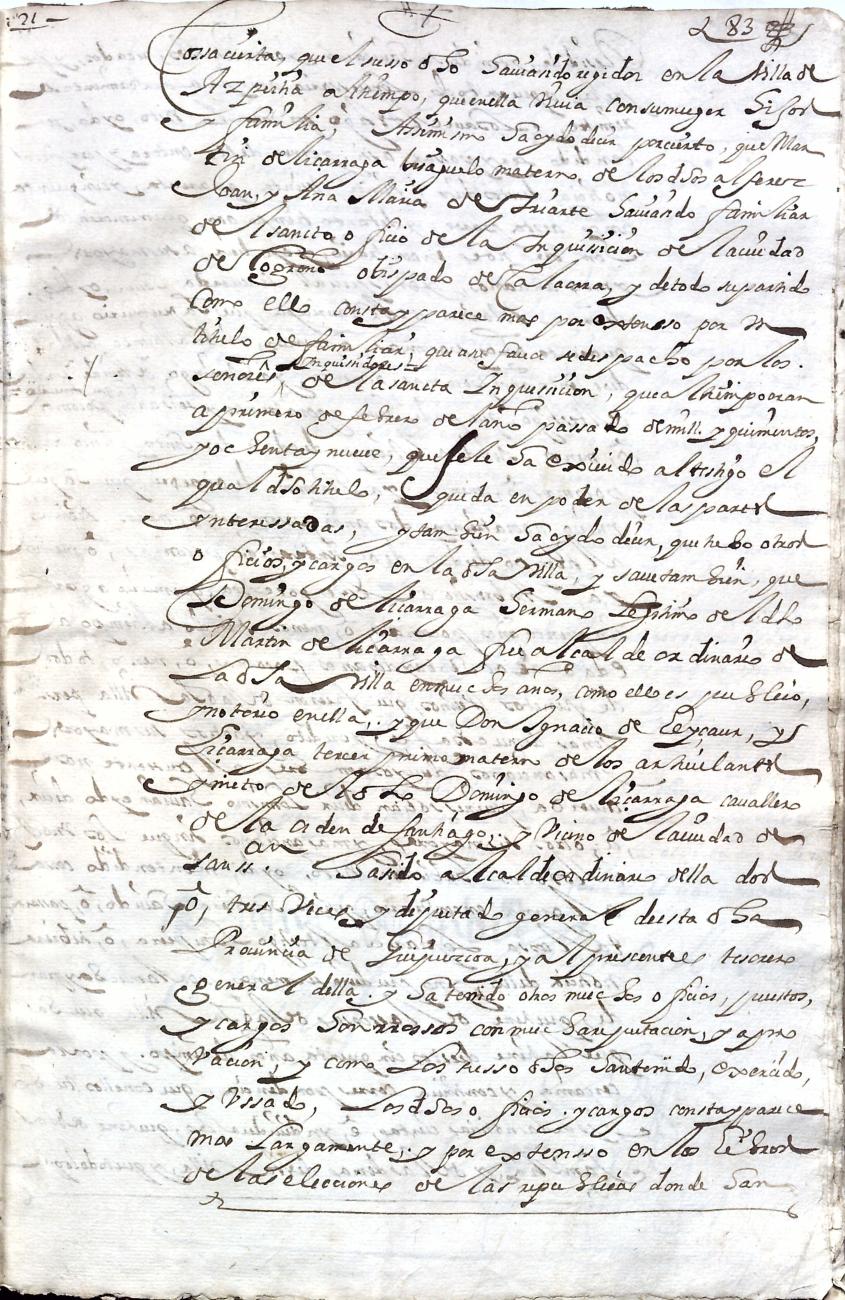 21
283
Cossa cierta, que el susso dho Saviando regidor en la Villa de
Azpeitia a tiempo, que en ella Vivia con su muger Hijos
y familia, Assimismo ha oydo decir por cierto, que Mar
tin de liçarraga bisaguelo materno, de los dhos alferez
Joan, y Ana Maria de Iriarte haviando familiar
del sancto officio de la Inquisicion de la ciudad
de Logroño obispado de Calaorra, y de todo su partido
Como ello consta y parece mas por extenso por Un
titulo de familiar, que en su favor se despacho por los
señores Inquisidores de la sancta Inquisicion, que a la tiempo eran
a primero de febrero del año passado de mill y quinientos,
y ochenta y nueve, que se le ha exivido al testigo el
qual dho titulo, queda en poder de las partes
ynteressadas, y tambien ha oydo decir, que tubo otros
officios, y cargos en la dha Villa, y save tambien, que
Domingo de liçarraga hermano Legitimo del dho
Martin de liçarraga fue alcalde ordinario de
La dha Villa en muchos años, como ello es publico,
y notorio en ella, y que Don Ignacio de Leyçaur, y
Liçarraga tercer primo materno de los articulantes
y nieto del dho Domingo de liçarraga cavallero
de la orden de santiago, y Vecino de la ciudad de
san ss.an ha sido alcalde ordinario della dos
po, tres Veces, y diputado general de esta dha
Provincia de Guipuzcoa, y al presente es tesorero
general della, y ha tenido otros muchos officios, puestos,
y cargos honrrossos con mucha reputacion, y apro
vacion, y como Los susso dhos han tenido, exercido,
y Ussado, Los dhos officios, y cargos consta y parece
mas Largamente, y por extensso en los Libros
de las elecciones de las republicas donde han